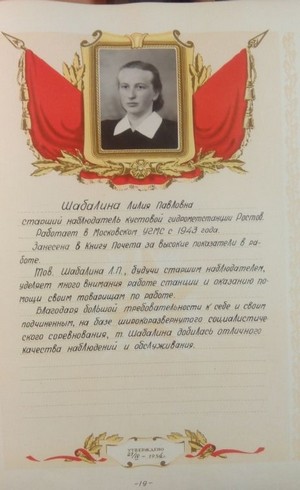 Шабалина Лилия Павловна
старший наблюдатель кустовой гидрометстанции Ростов.
Работает в Московском УГМС с 1943 года.
Занесена в Книгу Почета за высокие показатели в ра-
боте.
Тов. Шабалина Л.П., будучи старшим наблюдателем,
уделяет много внимания работе станции и оказанию по-
мощи своим товарищам по работе.
Благодаря большой требовательности к себе и своим
подчиненным, на базе широкоразвернутого социалистиче-
ского соревнования, т. Шабалина добилась отличного
качества наблюдений и обслуживания.
УТВЕРЖДЕНО
-19-